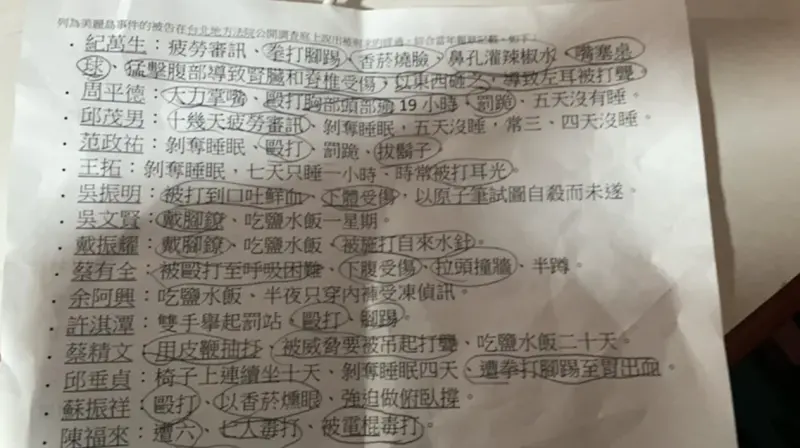 列為美麗島事件的被告在台北地方法院公開調查庭上說出被刑求的經過，綜合當年報章記載，如下：
・紀萬生：疲勞審訊、拳打腳踢、香菸燒臉、鼻孔灌辣椒水、嘴塞桌
球、猛擊腹部導致腎臟和脊椎受傷，以東西砸之，導致左耳被打聾。
・周平德：大力掌嘴、毆打胸部頭部 19 小時、罰跪、五天沒有睡。
・邱茂男：十幾天疲勞審訊、剝奪睡眠，五天沒睡，常三、四天沒睡。
・范政祐：剝奪睡眠、毆打、罰跪、拔鬍子
・王拓：剝奪睡眠，七天只睡一小時、時常被打耳光。
・吳振明：被打到口吐鮮血、下體受傷，以原子筆試圖自殺而未遂。
・吳文賢：戴腳鐐、吃鹽水飯一星期。
・戴振耀：戴腳鐐、吃鹽水飯、被施打自來水針。
・蔡有全：被毆打至呼吸困難、下腹受傷、拉頭撞牆、半蹲。
・余阿興：吃鹽水飯、半夜只穿內褲受凍偵訊。
・許淇潭：雙手舉起罰站、毆打、腳踢。
・蔡精文：用皮鞭抽打、被威脅要被吊起打聾、吃鹽水飯二十天。
・邱垂貞：椅子上連續坐十天、剝奪睡眠四天、遭拳打腳踢至胃出血。
・蘇振祥：毆打、以香菸燻眼、強迫做俯臥撐。
・陳福來：遭六、七人毒打、被電棍毒打。